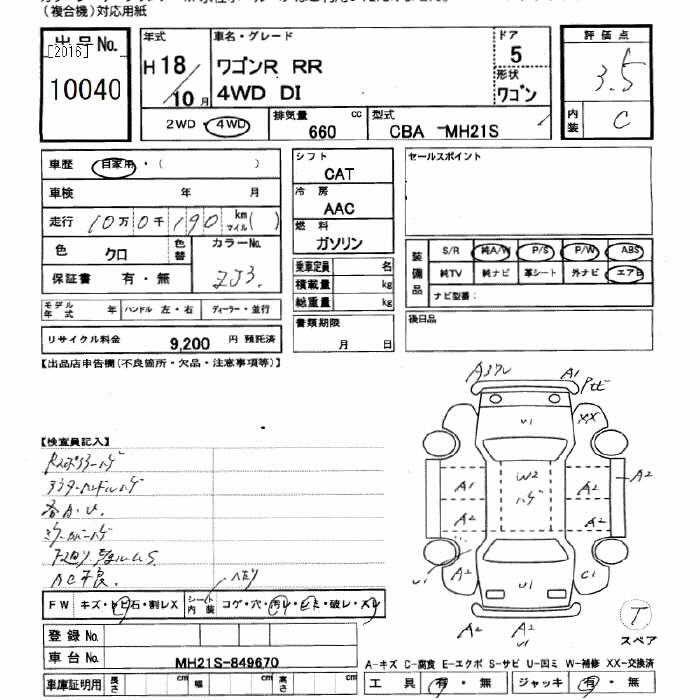 (複合機)対応用紙
出品No.
[2016]
10040
年式
H18/10月
車名・グレード
ワゴンR RR
4WD DI
ドア
5
形状
ワゴン
評価点
3.5
内装
C
2WD・4WD
排気量
660 cc
型式
CBA -MH21S
車歴 自家用・( )
車検 年 月
走行 10万0千190 km マイル( )
色 クロ 色替 カラーNo. ZJ3
保証書 有・無
モデル年式 年 ハンドル 左・右 ディーラー・並行
リサイクル料金 9,200 円 預託済
シフト
CAT
冷房
AAC
燃料
ガソリン
乗車定員 名
積載量 kg
総重量 kg
書類期限
月 日
セールスポイント
装備品
S/R 純A/W P/S P/W ABS
純TV 純ナビ 革シート 外ナビ エアB
ナビ型番:
後日品
【出品店申告欄(不良箇所・欠品・注意事項等)】
【検査員記入】
各A.U.
AC不良.
FW キズ・トビ石・割レX シート内装 コゲ・穴・汚レ・シミ・破レ・スレ
登録No.
車台No. MH21S-849670
車庫証明用 長さ cm 幅 cm 高さ cm
A1
XX
U1
W2
ハゲ
A1
A2
A2
A2
A2
A2
U1
C1
U1
A2
A2
U1
T
スペア
A-キズ C-腐食 E-エクボ S-サビ U-凹ミ W-補修 XX-交換済
工具 有・無 ジャッキ 有・無